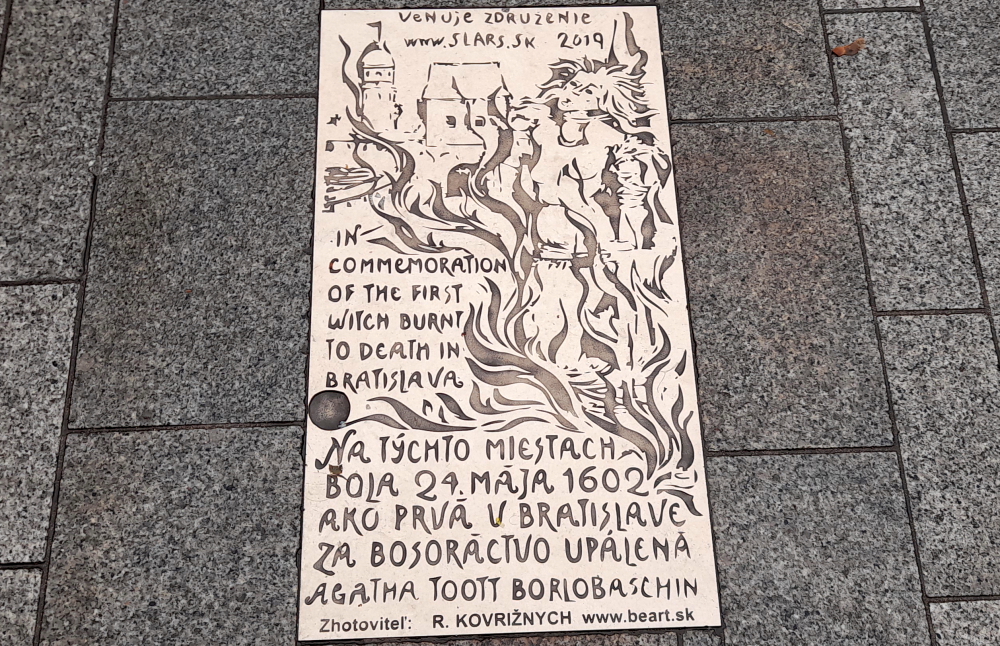 VENUJE ZDRUŽENIE
www.SLARS.SK 2019
IN
COMMEMORATION
OF THE FIRST
WITCH BURNT
TO DEATH IN
BRATISLAVA
NA TÝCHTO MIESTACH
BOLA 24. MÁJA 1602
AKO PRVÁ V BRATISLAVE
ZA BOSORÁCTVO UPÁLENÁ
AGATHA TOOTT BORLOBASCHIN
Zhotoviteľ: R. KOVRIŽNYCH www.beart.sk